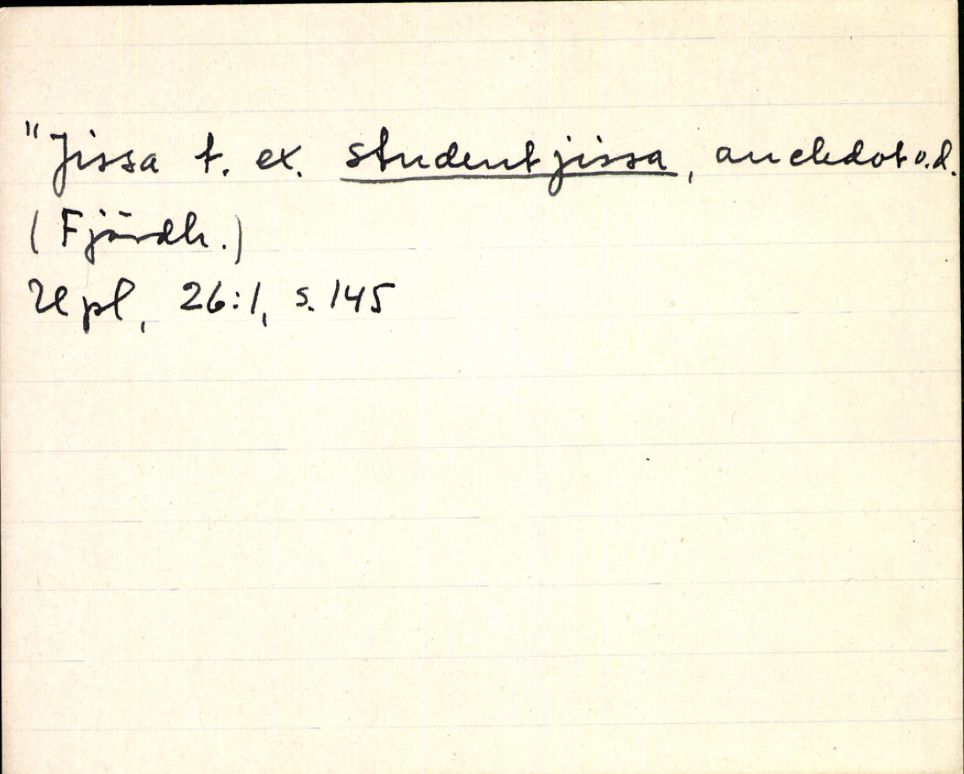 "Jissa t. ex. studentjissa, anekdot o.d.
(Fjärdh.)
Upl, 26:1, s. 145